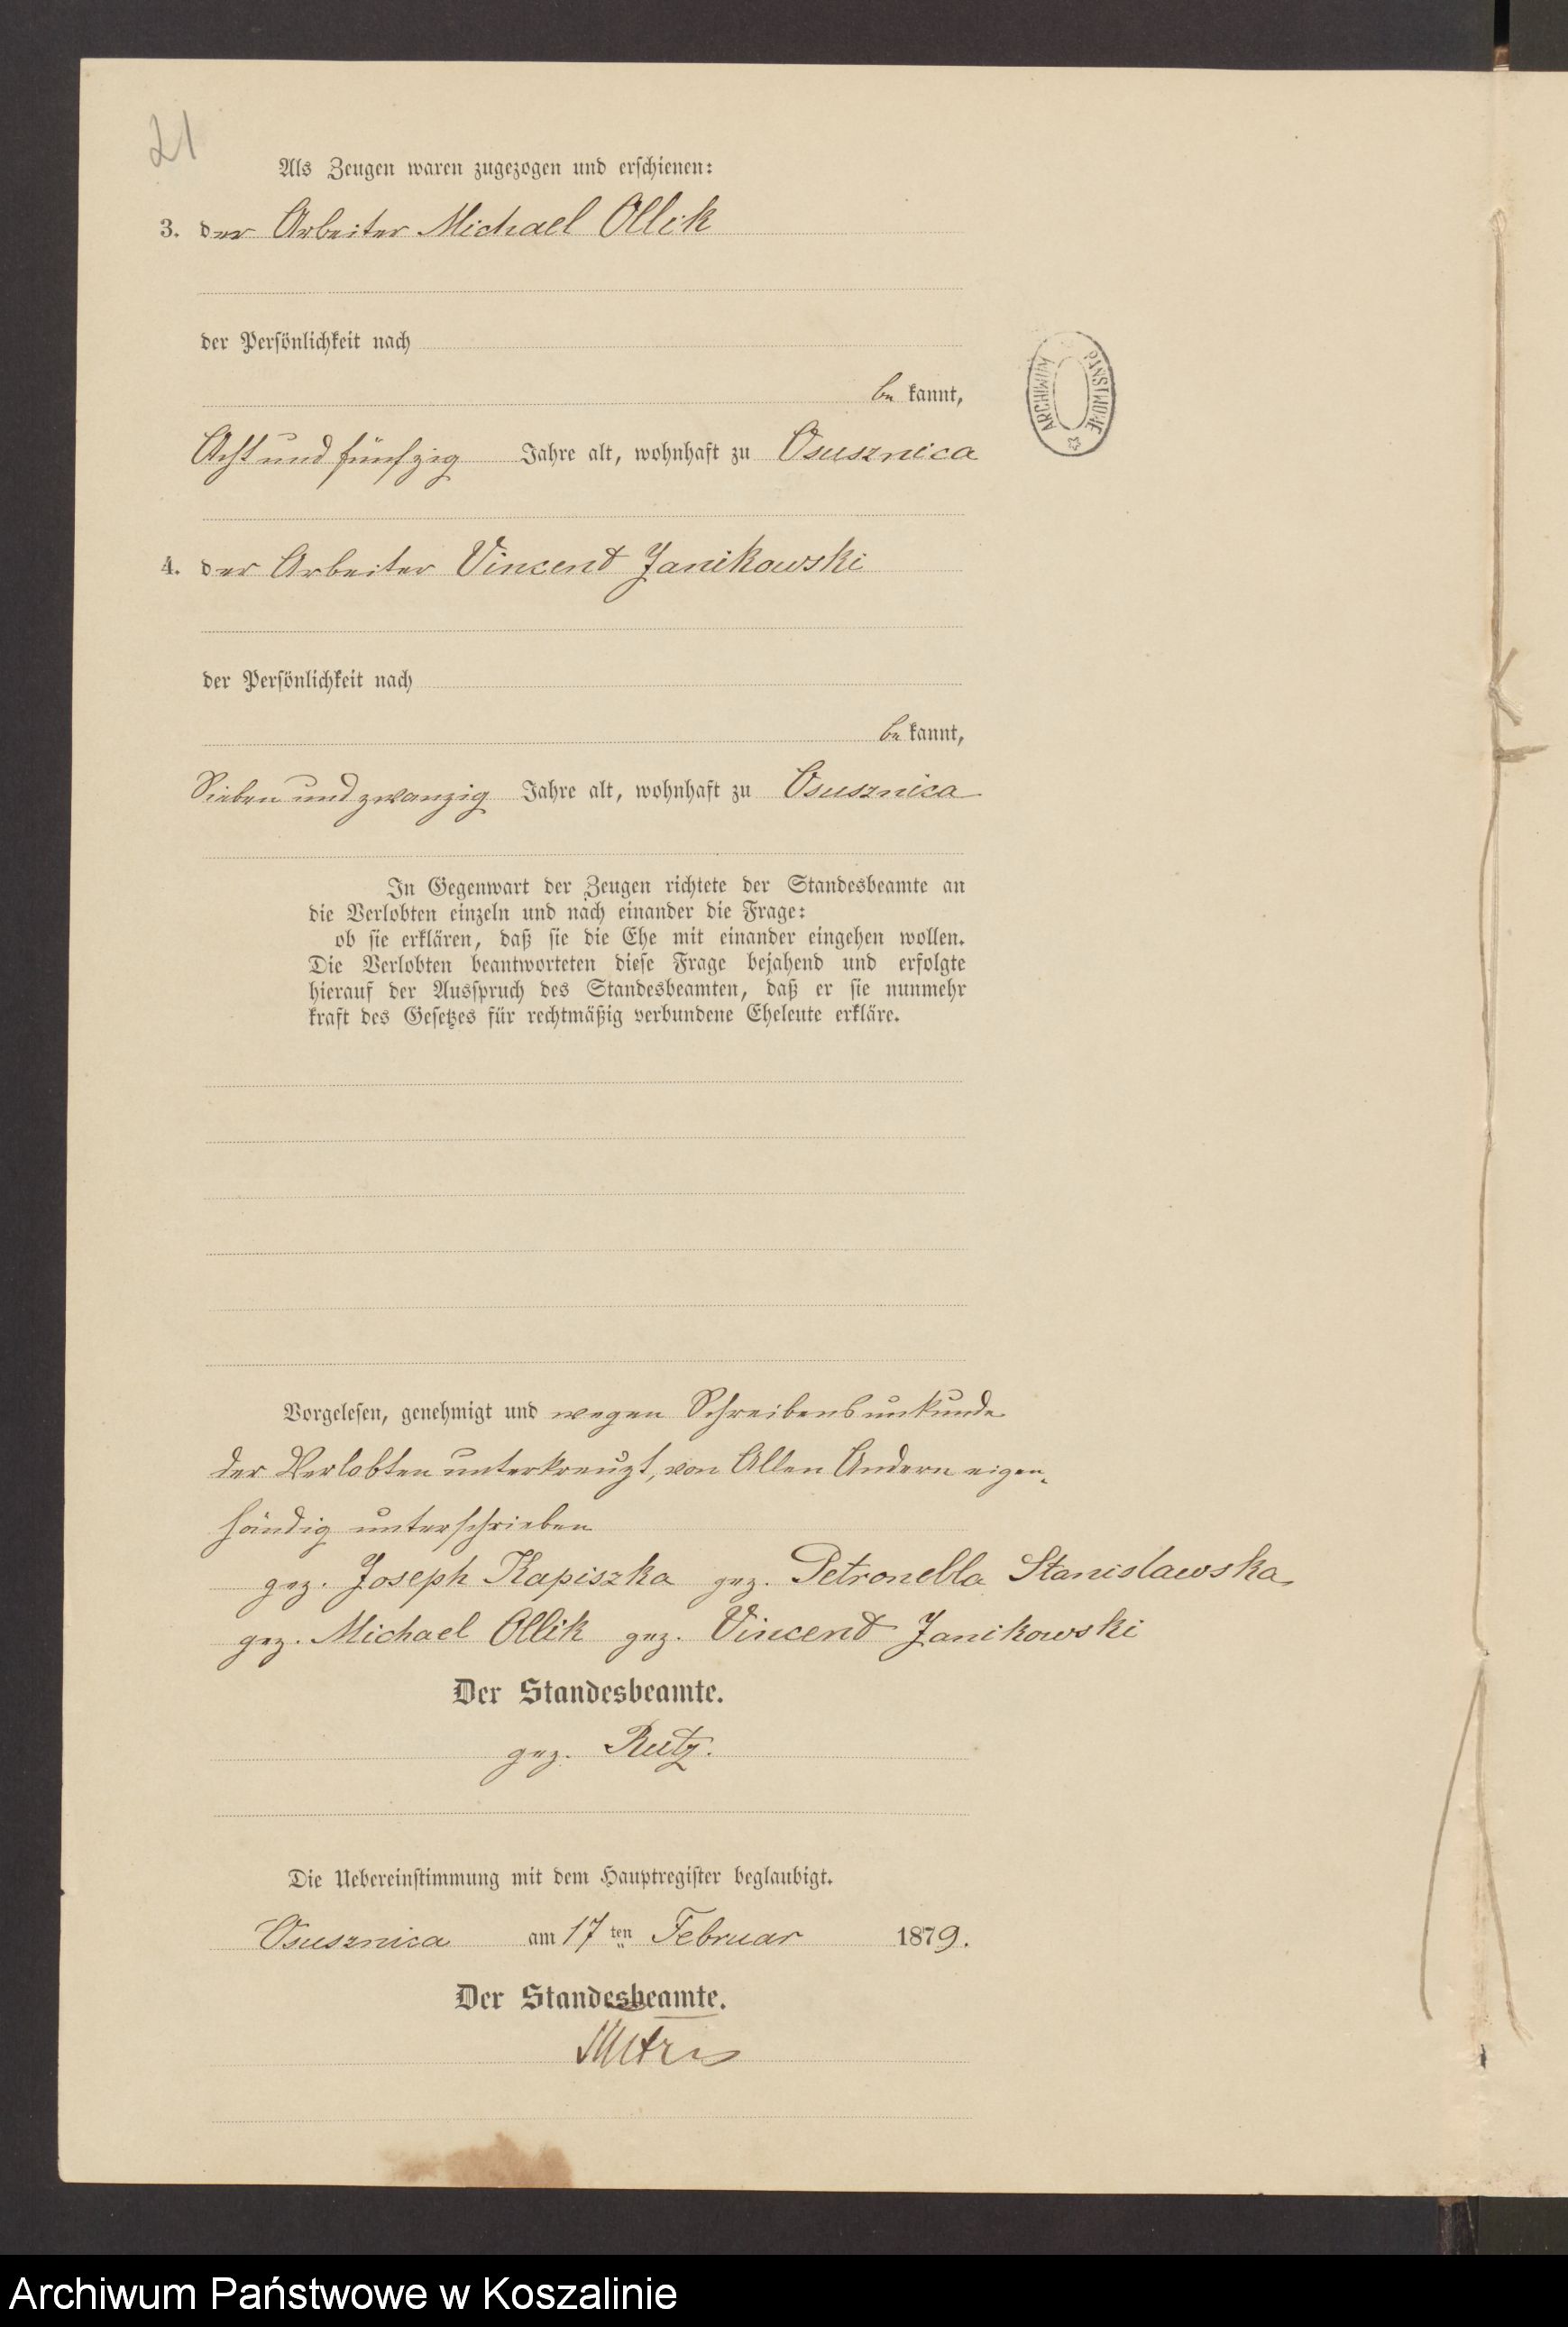 21
Als Zeugen waren zugezogen und erschienen:
3. der Arbeiter Michael Ollik
der Persönlichkeit nach
be kannt,
Acht und fünfzig Jahre alt, wohnhaft zu Osusznica
4. der Arbeiter Vincent Janikowski
der Persönlichkeit nach
be kannt,
Sieben und zwanzig Jahre alt, wohnhaft zu Osusznica
In Gegenwart der Zeugen richtete der Standesbeamte an
die Verlobten einzeln und nach einander die Frage:
ob sie erklären, daß sie die Ehe mit einander eingehen wollen.
Die Verlobten beantworteten diese Frage bejahend und erfolgte
hierauf der Ausspruch des Standesbeamten, daß er sie nunmehr
kraft des Gesetzes für rechtmäßig verbundene Eheleute erkläre.
Vorgelesen, genehmigt und wegen Schreibensunkunde
der Verlobten unterkreuzt, von Allen Andern eigen-
händig unterschrieben
gez. Joseph Kapiszka gez. Petronella Stanislawska
gez. Michael Ollik gez. Vincent Janikowski
Der Standesbeamte.
gez. Rutz.
Die Uebereinstimmung mit dem Hauptregister beglaubigt.
Osusznica am 17 ten Februar 1879.
Der Standesbeamte.
ARCHIWUM PAŃSTWOWE
Archiwum Państwowe w Koszalinie